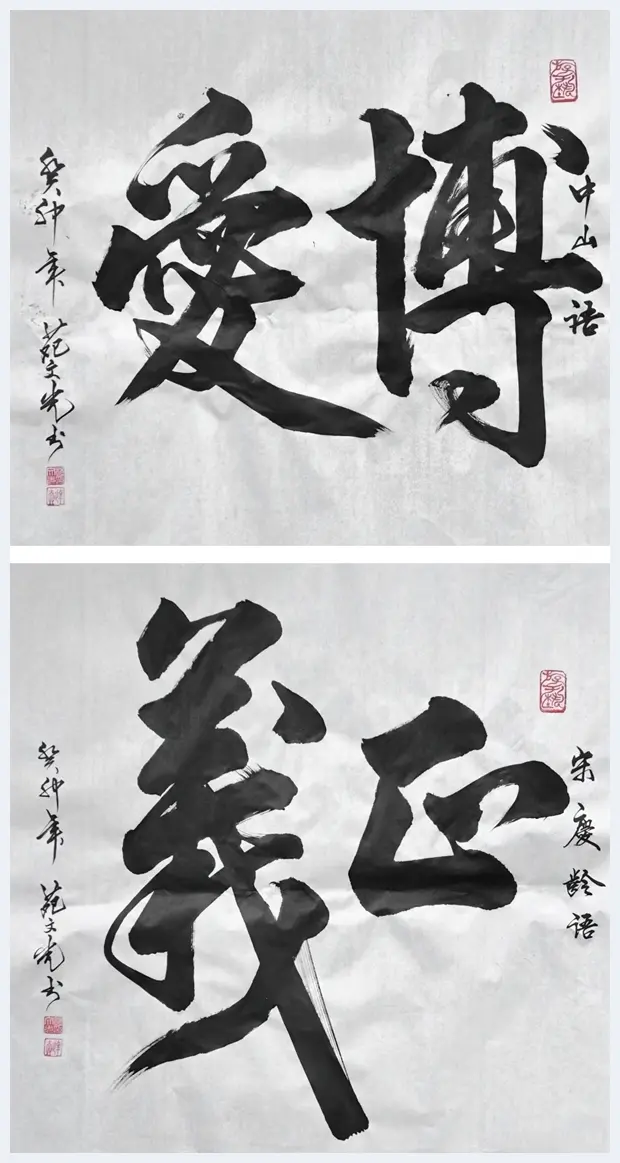 中山語
博愛
癸卯年 范文光书
宋慶齡語
正義
癸卯年 范文光书